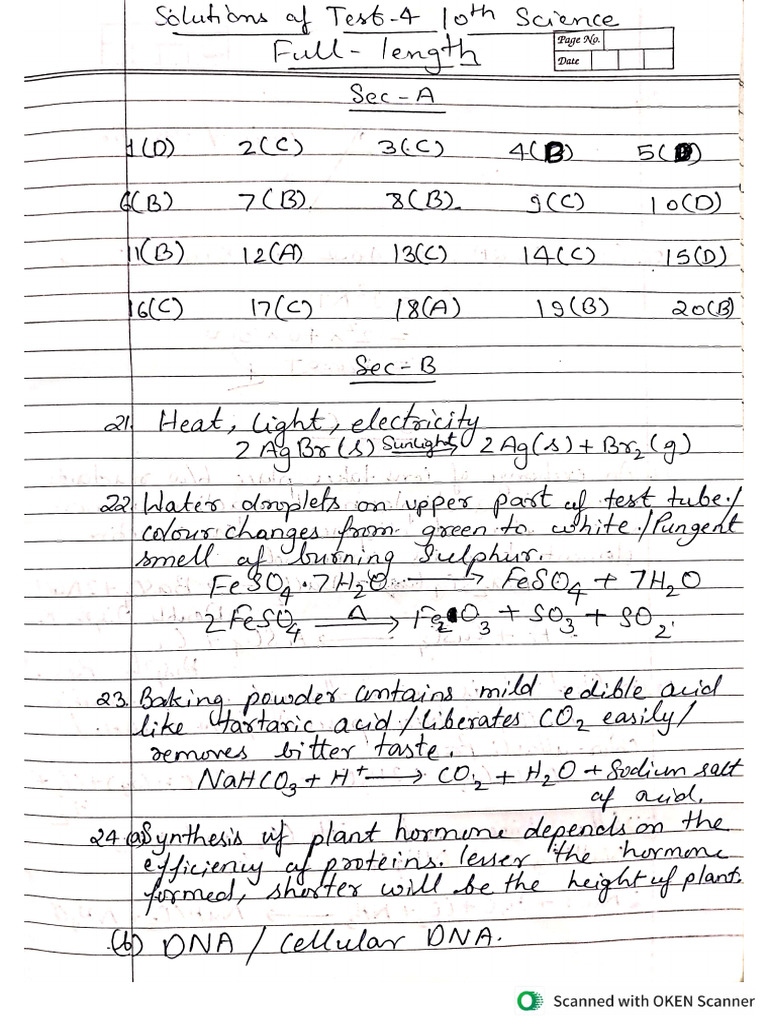 Solutions of Test-4 10th Science
Full-length
Page No.
Date
Sec-A
1(D) 2(C) 3(C) 4(B) 5(D)
6(B) 7(B). 8(B). 9(C) 10(D)
11(B) 12(A) 13(C) 14(C) 15(D)
16(C) 17(C) 18(A) 19(B) 20(B)
Sec-B
21. Heat, light, electricity
2AgBr(s) Sunlight→ 2Ag(s) + Br₂(g)
22. Water droplets on upper part of test tube./
colour changes from green to white./Pungent
smell of burning Sulphur.
FeSO₄·7H₂O → FeSO₄ + 7H₂O
2FeSO₄ Δ→ Fe₂O₃ + SO₃ + SO₂.
23. Baking powder contains mild edible acid
like tartaric acid/liberates CO₂ easily/
removes bitter taste.
NaHCO₃ + H⁺ → CO₂ + H₂O + Sodium salt
of acid.
24 (a) Synthesis of plant hormone depends on the
efficiency of proteins. lesser the hormone
formed, shorter will be the height of plant.
(b) DNA / cellular DNA.
Scanned with OKEN Scanner